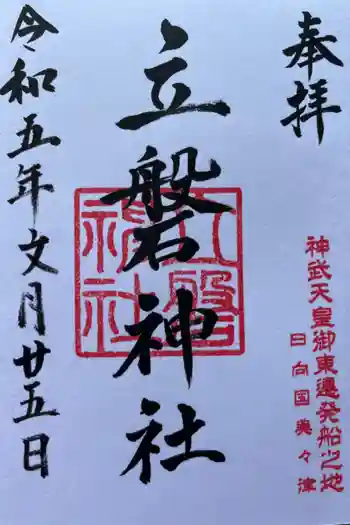 奉拝
神武天皇御東遷発船之地
日向国美々津
立磐神社
立磐神社
令和五年文月廿五日